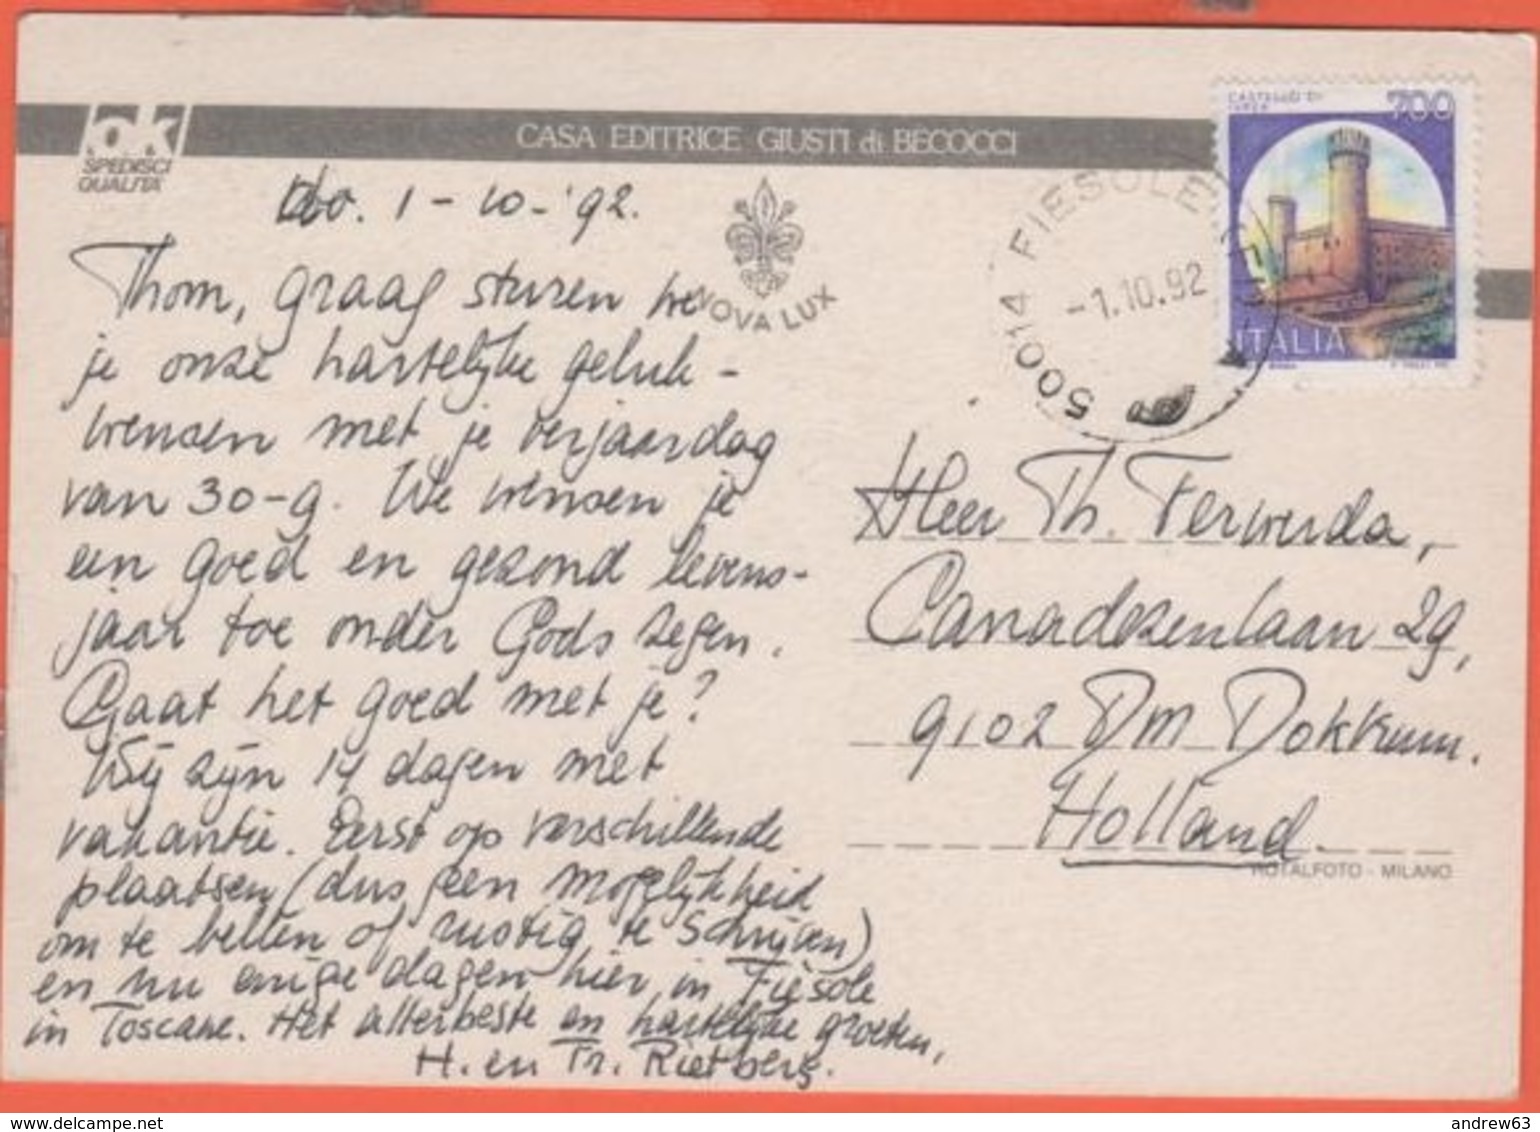 ok
SPEDISCI
QUALITA'
CASA EDITRICE GIUSTI di BECOCCI
NOVA LUX
CASTELLO DI
700
ITALIA
50014 FIESOLE
-1.10.92
Do. 1-10-'92.
Thom, graag sturen we
je onze hartelijke geluk-
wensen met je verjaardag
van 30-9. We wensen je
een goed en gezond levens-
jaar toe onder Gods zegen.
Gaat het goed met je?
Wij zijn 14 dagen met
vakantie. Eerst op verschillende
plaatsen (dus geen mogelijkheid
om te bellen of rustig te schrijven)
en nu enige dagen hier in Fiesole
in Toscane. Het allerbeste en hartelijke groeten,
H. en Tr. Rietberg.
Heer Th. Ferwerda,
Canadezenlaan 29,
9102 DM Dokkum.
Holland.
ROTALFOTO - MILANO
delcampe.net
andrew63